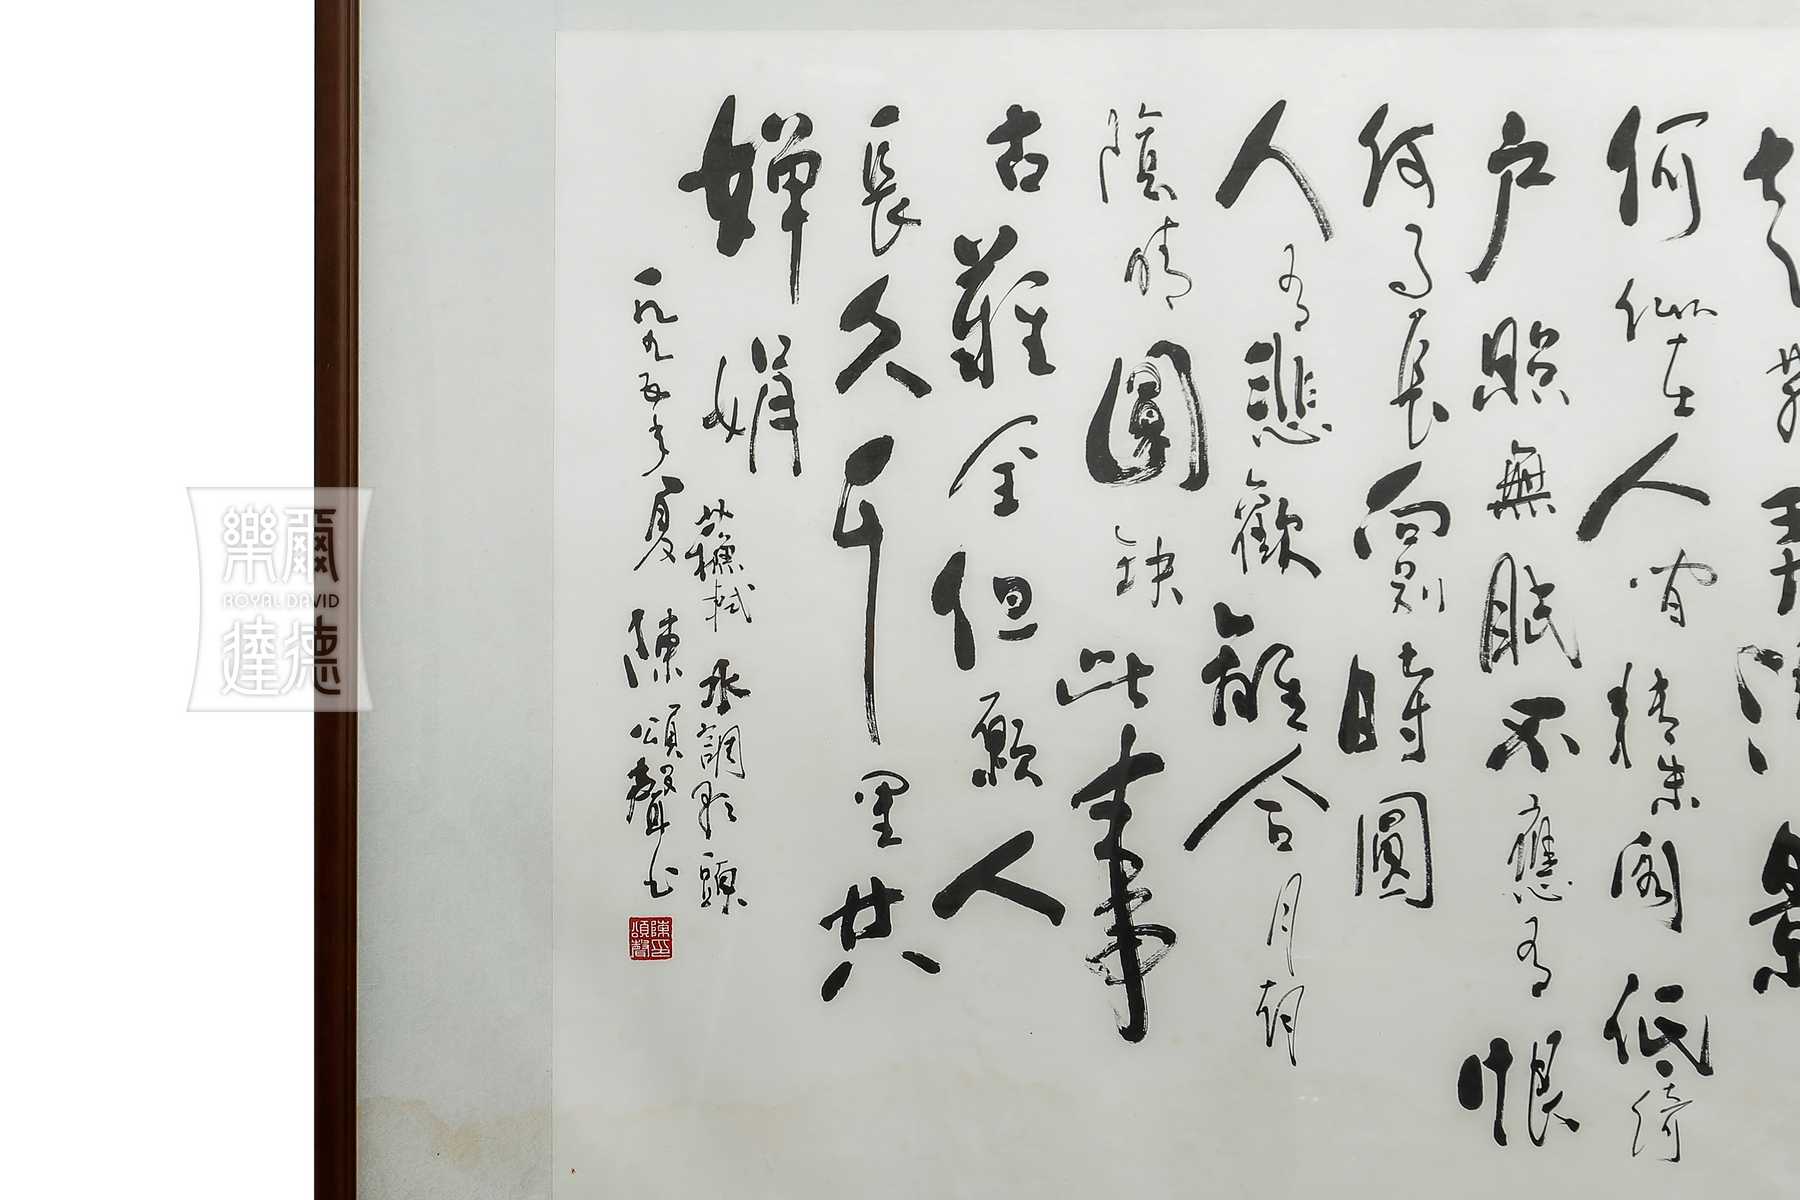 起舞弄清影
何似在人间轉朱阁低綺
户照無眠不應有恨
何事長向别時圓
人有悲歡離合月
陰晴圓缺此事
古難全但願人
長久千里共
嬋娟
蘇軾 水調歌頭
一九九五年夏 陳頌聲书
陳印頌聲
樂爾
ROYAL DAVID
達德